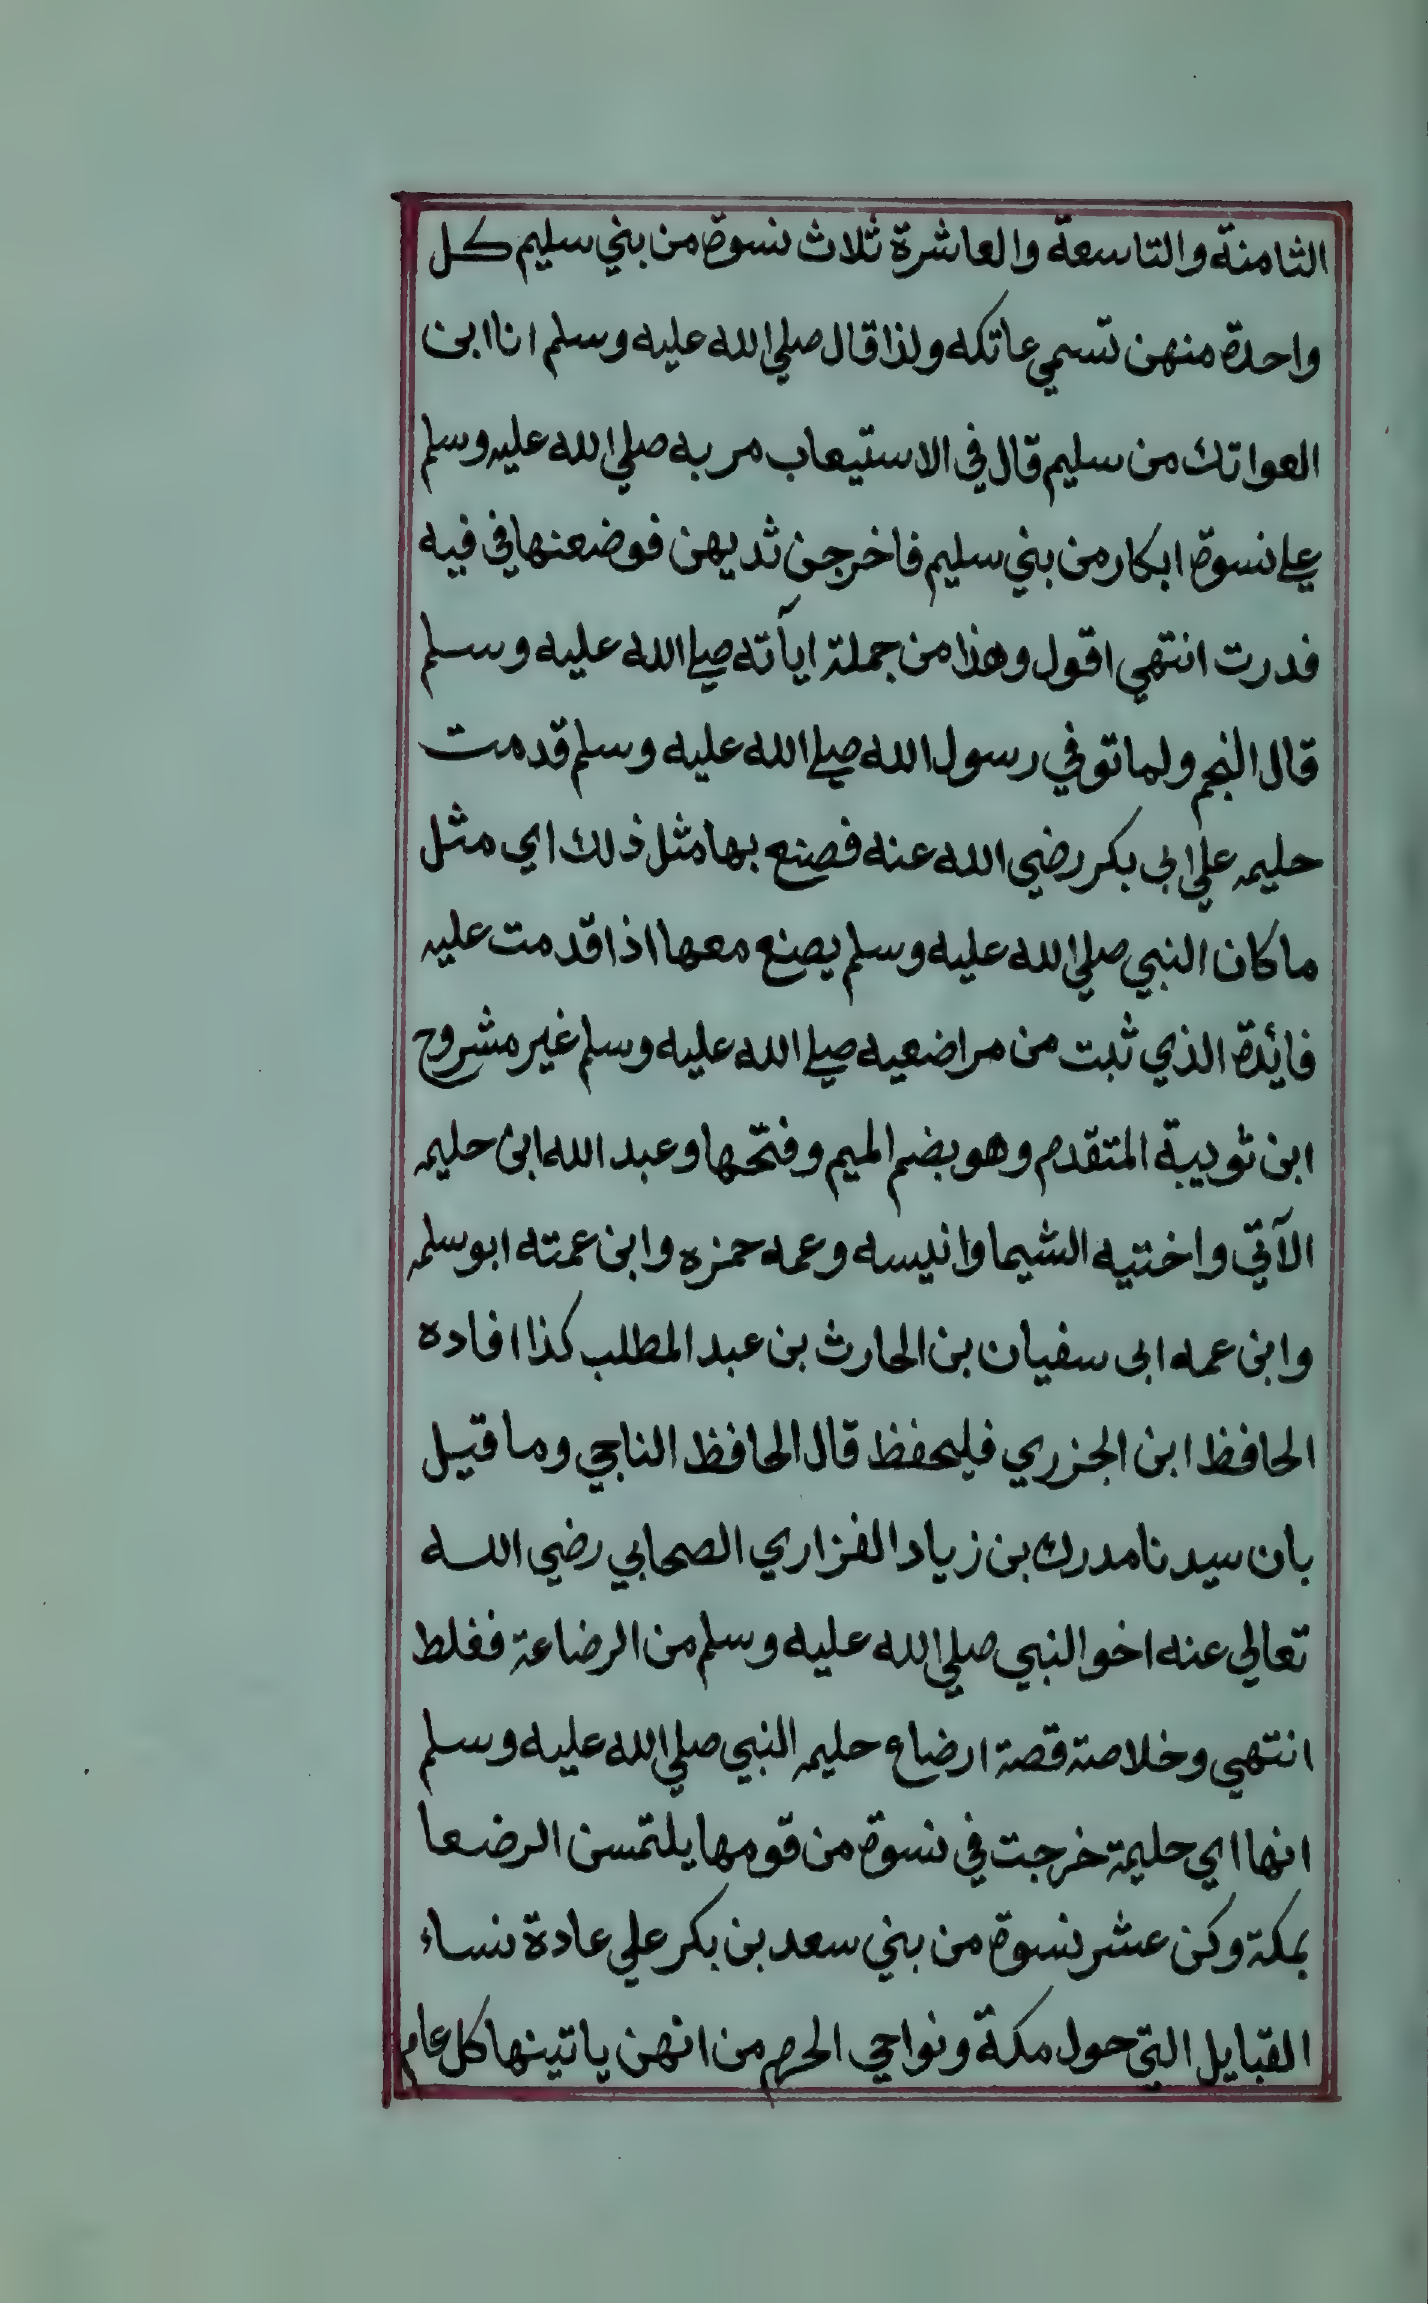 الثامنة والتاسعة والعاشرة ثلاث نسوة من بني سليم كل
واحدة منهن تسمي عاتكه ولذا قال صلي الله عليه وسلم انا ابن
العواتك من سليم قال في الاستيعاب مر به صلي الله عليه وسلم
علي نسوة ابكار من بني سليم فاخرجن ثديهن فوضعنها في فيه
فدرت انتهي اقول وهذا من جملة ايآته صلي الله عليه وسلم
قال النجم ولما توفي رسول الله صلي الله عليه وسلم قدمت
حليمه علي ابي بكر رضي الله عنه فصنع بها مثل ذلك اي مثل
ما كان النبي صلي الله عليه وسلم يصنع معها اذا قدمت عليه
فائدة الذي ثبت من مراضعيه صلي الله عليه وسلم غير مشروح
ابن ثويبة المتقدم وهو بضم الميم وفتحها وعبد الله ابن حليمه
الآتي واختيه الشيما وانيسه وعمه حمزه وابن عمته ابو سلمه
وابن عمه ابي سفيان بن الحارث بن عبد المطلب كذا افاده
الحافظ ابن الجزري فليحفظ قال الحافظ الناجي وما قيل
بان سيدنا مدرك بن زياد الفزاري الصحابي رضي الله
تعالي عنه اخو النبي صلي الله عليه وسلم من الرضاعة فغلط
انتهي وخلاصة قصة ارضاع حليمه النبي صلي الله عليه وسلم
انها اي حليمة خرجت في نسوة من قومها يلتمسن الرضعا
بمكة وكن عشر نسوة من بني سعد بن بكر علي عادة نساء
القبايل التي حول مكة ونواحي الحرم من انهن ياتينها كل عام